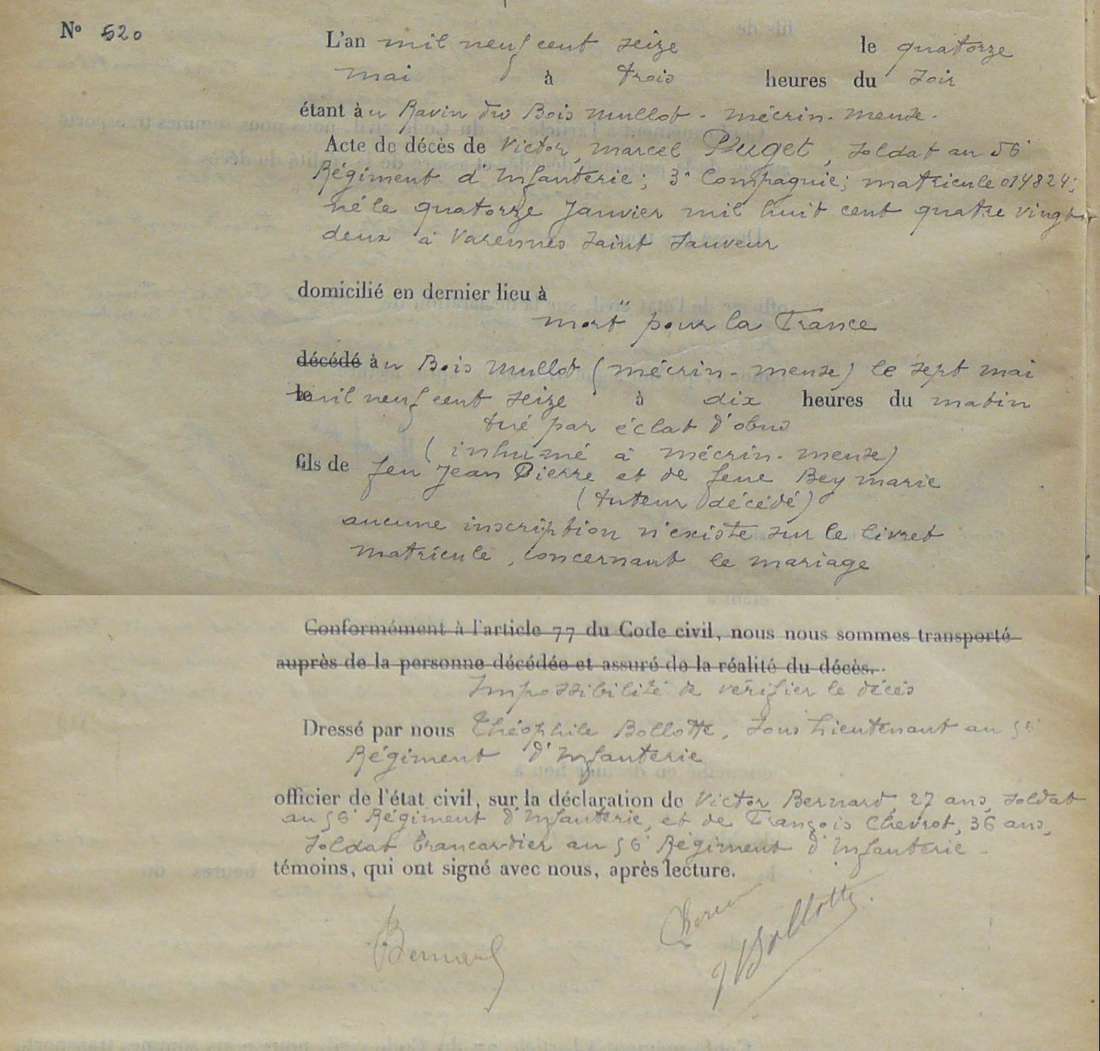 N° 520
L'an mil neuf cent seize le quatorze
mai à trois heures du soir
étant à u Ravin du Bois Mullot - Mécrin - Meuse -
Acte de décès de Victor, Marcel Puget, soldat au 56
Régiment d'Infanterie; 3e Compagnie; matricule 014824;
né le quatorze Janvier mil huit cent quatre vingt
deux à Varennes Saint Sauveur
domicilié en dernier lieu à "
mort pour la France
décédé à u Bois Mullot (Mécrin - Meuse) le sept mai
le mil neuf cent seize à dix heures du matin
tué par éclat d'obus
(inhumé à Mécrin - Meuse)
fils de feu Jean Pierre et de feue Bey Marie
(tuteur décédé)
aucune inscription n'existe sur le livret
matricule, concernant le mariage
Conformément à l'article 77 du Code civil, nous nous sommes transporté
auprès de la personne décédée et assuré de la réalité du décès.
Impossibilité de vérifier le décès
Dressé par nous Théophile Bollotte, Sous Lieutenant au 56e
Régiment d'Infanterie
officier de l'état civil, sur la déclaration de Victor Bernard, 27 ans, soldat
au 56e Régiment d'Infanterie, et de François Chevrot, 36 ans,
soldat brancardier au 56e Régiment d'Infanterie -
témoins, qui ont signé avec nous, après lecture.
Bernard
Bollotte